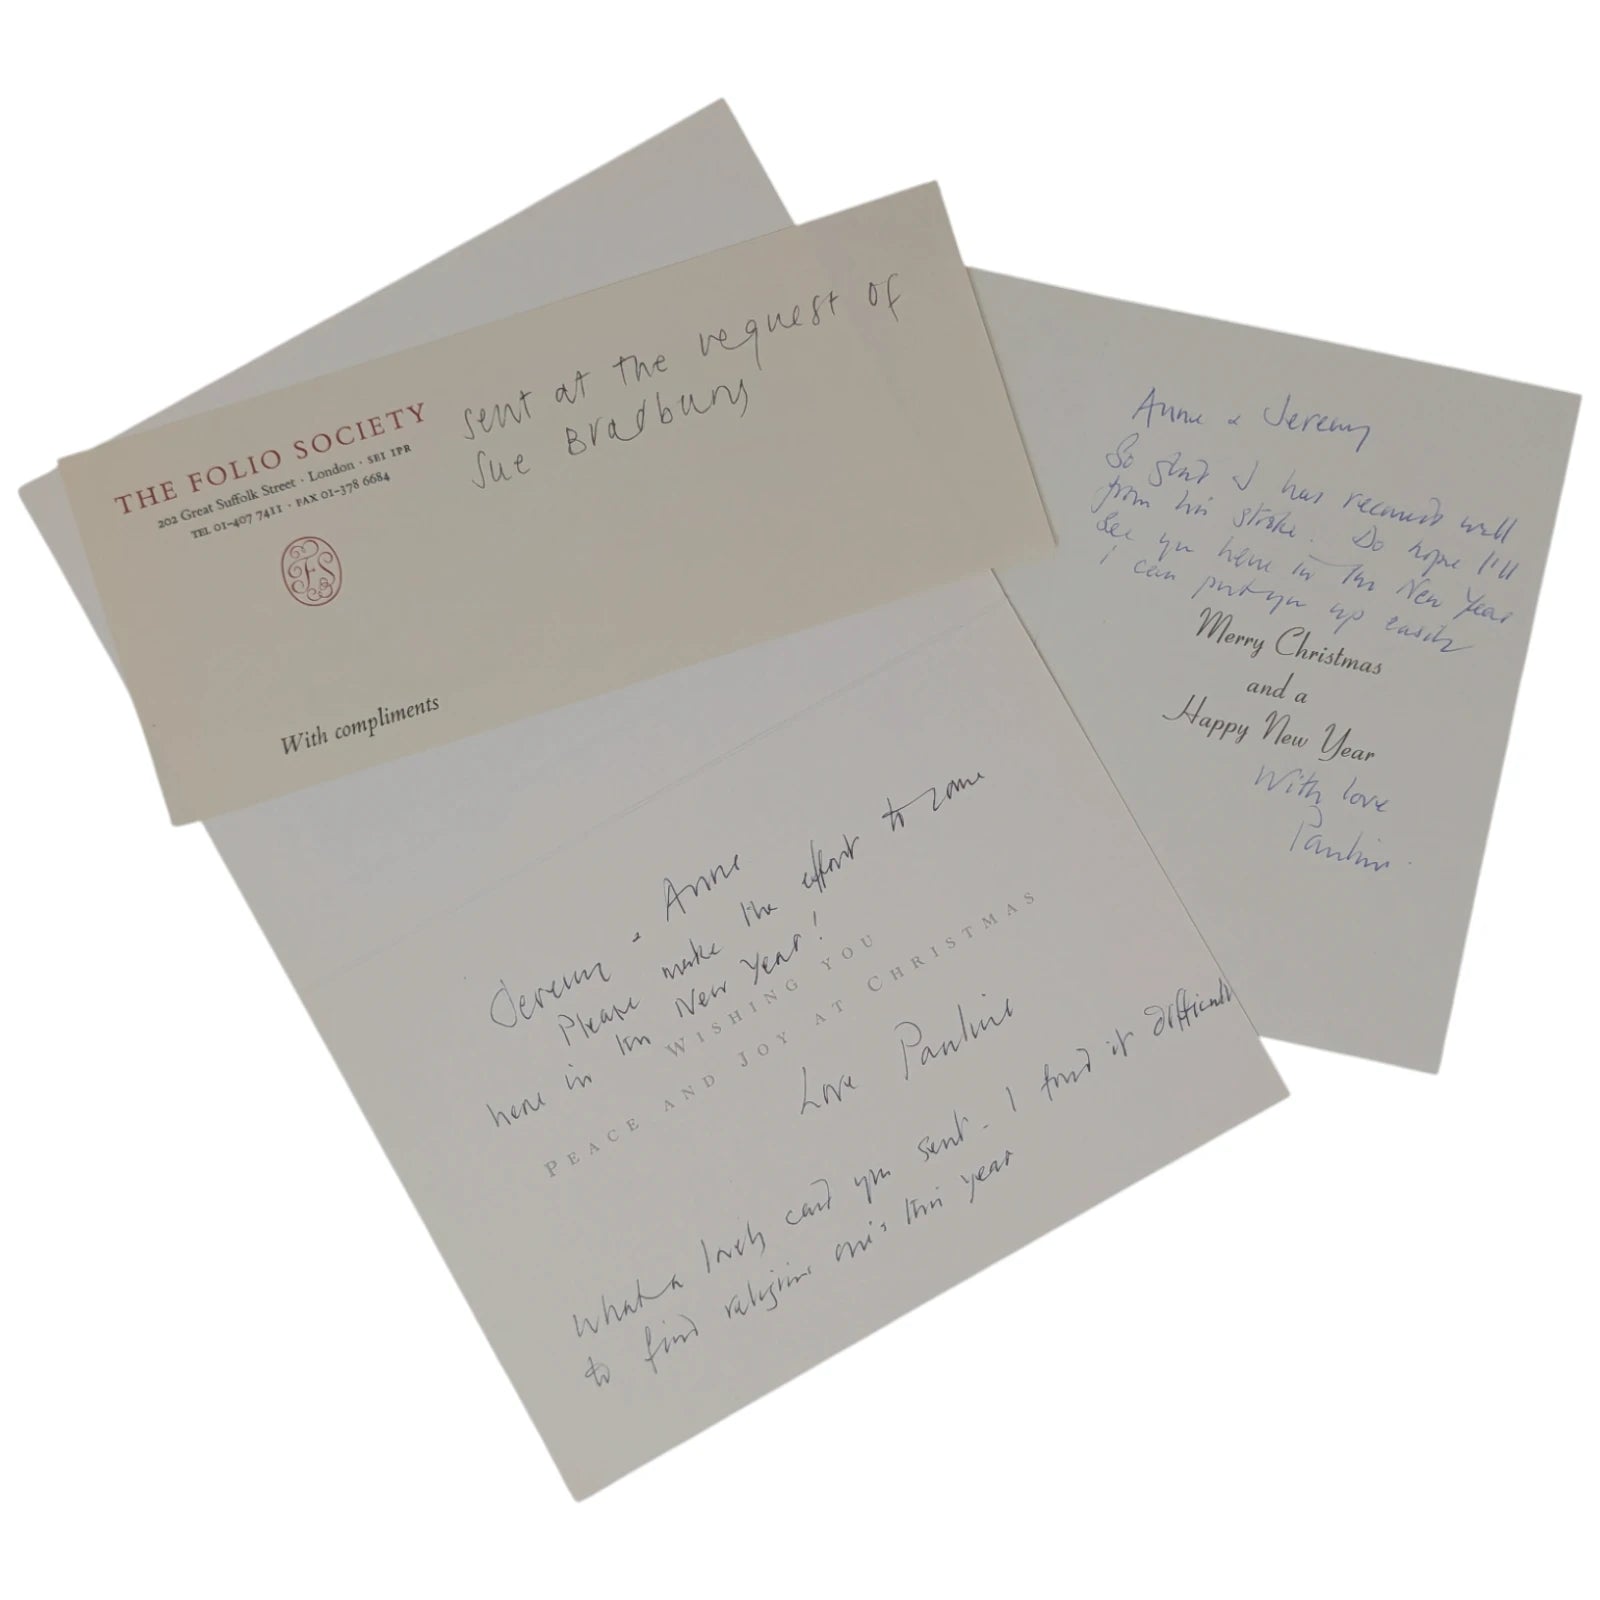 THE FOLIO SOCIETY
202 Great Suffolk Street · London · SE1 1PR
TEL 01-407 7411 · FAX 01-378 6684
FS
sent at the request of
Sue Bradbury
With compliments
Anne & Jeremy
So glad J has recovered well
from his stroke. Do hope I'll
see you here in the New Year
I can put you up easily
Merry Christmas
and a
Happy New Year
With love
Pauline
Jeremy & Anne
Please make the effort to come
here in the New Year!
WISHING YOU
PEACE AND JOY AT CHRISTMAS
Love Pauline
What a lovely card you sent - I found it difficult
to find religious one's this year